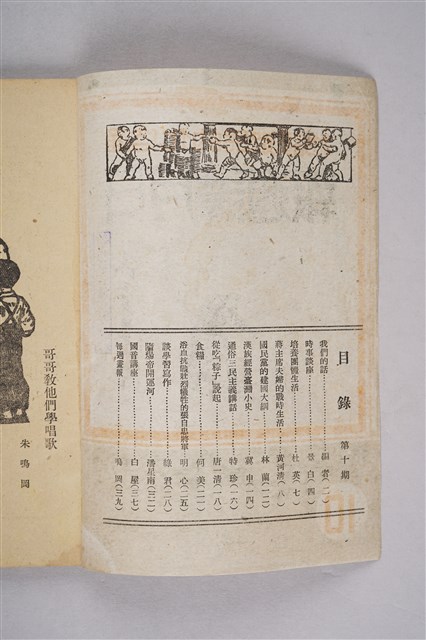 目錄 第十期
我們的話……編者(二)
時事談座……景白(四)
培養團體生活……杜英(七)
蔣主席夫婦的戰時生活……黃河清(八)
國民黨的建國大綱……林蘭(一二)
漢族經營臺灣小史……(一四)
通俗三民主義講話……特珍(一六)
從吃「粽子」說起……唐一清(一八)
食糧……何美(二一)
浴血抗戰壯烈犧牲的張自忠將軍……明心(二五)
談學習寫作……綠君(二八)
隋煬帝開運河……潘星南(三二)
國音講座……白屋(三七)
每週畫報……鳴岡(三九)
哥哥敎他們學唱歌
朱鳴岡